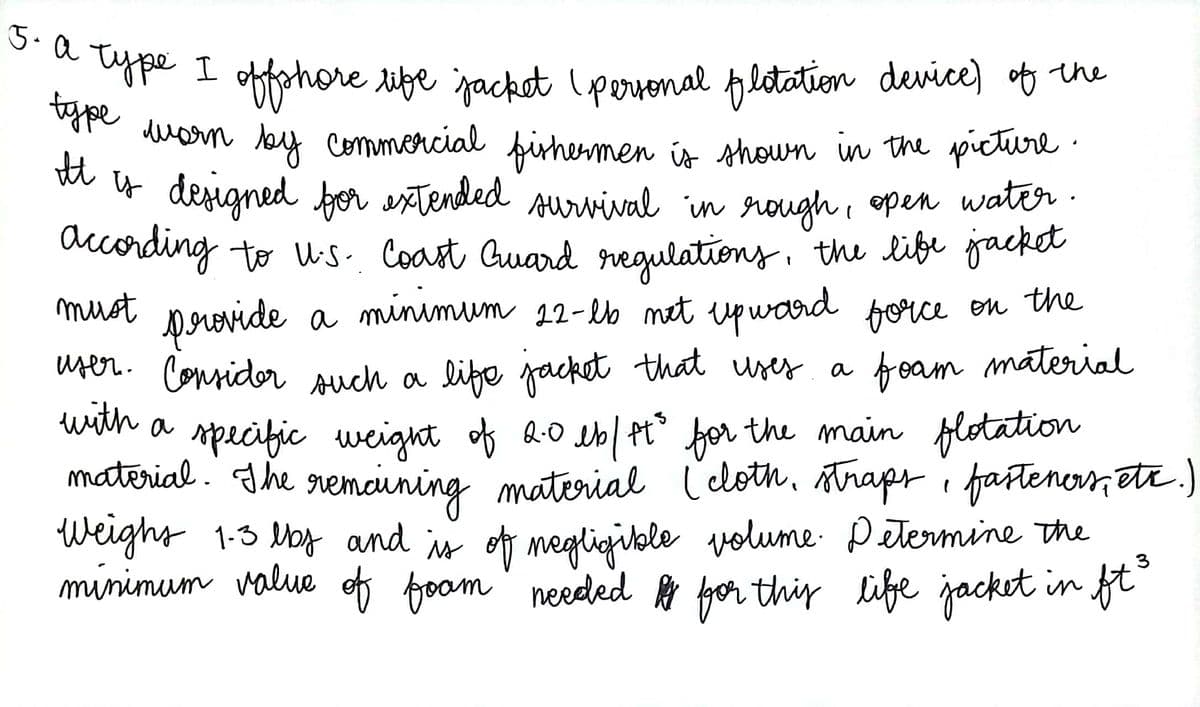 5. a type I offshore life jacket (personal flotation device) of the
type worn by commercial fishermen is shown in the picture.
It is designed for extended survival in rough, open water.
according to U.S. Coast Guard regulations, the life jacket
must provide a minimum 22-lb net upward force on the
user. Consider such a life jacket that uses a foam material
with a specific weight of 2.0 lb/ft³ for the main flotation
material. The remaining material (cloth, straps, fasteners, etc.)
Weighs 1.3 lbs and is of negligible volume. Determine the
minimum value of foam needed for this life jacket in ft³